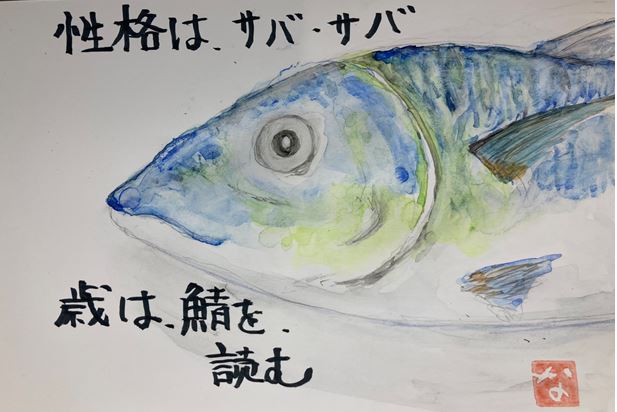 性格は、サバ・サバ
歳は、鯖を、
読む
な